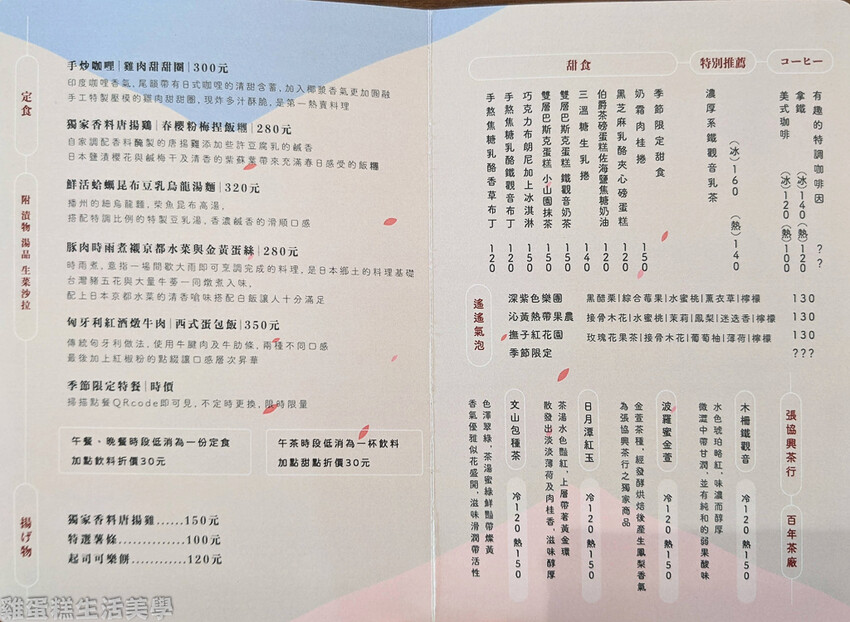 定食
附 漬物 湯品 生菜沙拉
手炒咖哩|雞肉甜甜圈|300元
印度咖哩香氣,尾韻帶有日式咖哩的清甜含蓄,加入椰漿香氣更加圓融
手工特製壓模的雞肉甜甜圈,現炸多汁酥脆,是第一熱賣料理
獨家香料唐揚鷄|春櫻粉梅捏飯糰|280元
自家調配香料醃製的唐揚雞添加些許豆腐乳的鹹香
日本鹽漬櫻花與鹹梅干及清香的紫蘇葉帶來充滿春日感受的飯糰
鮮活蛤蠣昆布豆乳烏龍湯麵|320元
播州的細烏龍麵,柴魚昆布高湯,
搭配特調比例的特製豆乳湯,香濃鹹香的滑順口感
豚肉時雨煮襯京都水菜與金黃蛋絲|280元
時雨煮,意指一場間歇大雨即可烹調完成的料理,是日本鄉土的料理基礎
台灣豬五花與大量牛蒡一同燉煮入味,
配上日本京都水菜的清香嗆味搭配白飯讓人十分滿足
匈牙利紅酒燉牛肉|西式蛋包飯|350元
傳統匈牙利做法,使用牛腱肉及牛肋條,兩種不同口感
最後加上紅椒粉的點綴讓口感層次昇華
季節限定特餐|時價
掃描點餐QRcode即可見,不定時更換,限時限量
午餐、晚餐時段低消為一份定食
加點飲料折價30元
午茶時段低消為一杯飲料
加點甜點折價30元
揚げ物
獨家香料唐揚雞......150元
特選薯條............100元
起司可樂餅............120元
コーヒー
有趣的特調咖啡因 ??
拿鐵 (冰)140(熱)120
美式咖啡 (冰)120(熱)100
特別推薦
濃厚系鐵觀音乳茶 (冰)160 (熱)140
甜食
季節限定甜食
奶霜肉桂捲 150
黑芝麻乳酪夾心磅蛋糕 120
伯爵茶磅蛋糕佐海鹽焦糖奶油 120
三溫糖生乳捲 140
雙層巴斯克蛋糕 鐵觀音奶茶 150
雙層巴斯克蛋糕 小山園抹茶 150
巧克力布朗尼加上冰淇淋 150
手熬焦糖乳酪鐵觀音布丁 120
手熬焦糖乳酪香草布丁 120
遙遙氣泡
深紫色樂園 黑醋栗|綜合莓果|水蜜桃|薰衣草|檸檬 130
沁黃熱帶果農 接骨木花|水蜜桃|茉莉|鳳梨|迷迭香|檸檬 130
撫子紅花園 玫瑰花果茶|接骨木花|葡萄柚|薄荷|檸檬 130
季節限定 ???
張協興茶行
百年茶廠
木柵鐵觀音 冷120熱150
水色琥珀略紅,味濃而醇厚
微澀中帶甘潤,並有純和的弱果酸味
波羅蜜金萱 冷120熱150
金萱茶種,經發酵烘焙後產生鳳梨香氣
為張協興茶行之獨家商品
日月潭紅玉 冷120熱150
茶湯水色豔紅,上層帶著黃金環
散發出淡淡薄荷及肉桂香,滋味醇厚
文山包種茶 冷120熱150
色澤翠綠,茶湯蜜綠鮮豔帶燦黃
香氣優雅似花盛開,滋味滑潤帶活性
雞蛋糕生活美學